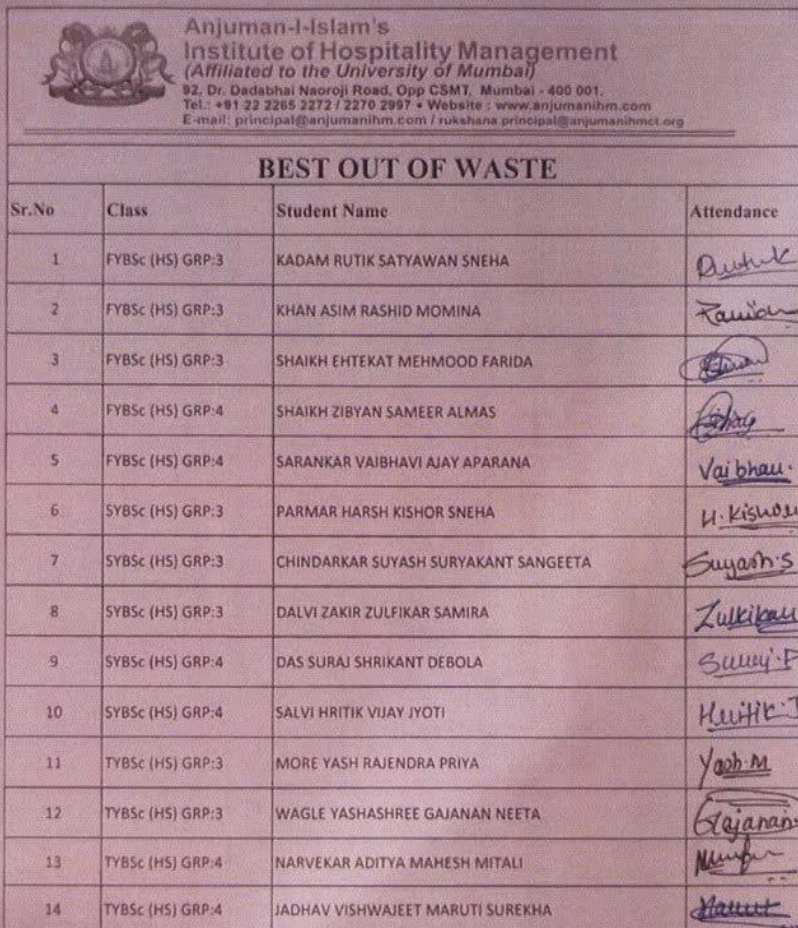 Anjuman-I-Islam's
Institute of Hospitality Management
(Affiliated to the University of Mumbai)
92, Dr. Dadabhai Naoroji Road, Opp CSMT, Mumbai - 400 001.
Tel.: +91 22 2265 2272 / 2270 2997 • Website : www.anjumanihm.com
E-mail: principal@anjumanihm.com / rukshana.principal@anjumanihmct.org
BEST OUT OF WASTE
Sr.No Class Student Name Attendance
1 FYBSc (HS) GRP:3 KADAM RUTIK SATYAWAN SNEHA
2 FYBSc (HS) GRP:3 KHAN ASIM RASHID MOMINA
3 FYBSc (HS) GRP:3 SHAIKH EHTEKAT MEHMOOD FARIDA
4 FYBSc (HS) GRP:4 SHAIKH ZIBYAN SAMEER ALMAS
5 FYBSc (HS) GRP:4 SARANKAR VAIBHAVI AJAY APARANA
6 SYBSc (HS) GRP:3 PARMAR HARSH KISHOR SNEHA
7 SYBSc (HS) GRP:3 CHINDARKAR SUYASH SURYAKANT SANGEETA Suyash.S
8 SYBSc (HS) GRP:3 DALVI ZAKIR ZULFIKAR SAMIRA
9 SYBSc (HS) GRP:4 DAS SURAJ SHRIKANT DEBOLA
10 SYBSc (HS) GRP:4 SALVI HRITIK VIJAY JYOTI
11 TYBSc (HS) GRP:3 MORE YASH RAJENDRA PRIYA Yash.M
12 TYBSc (HS) GRP:3 WAGLE YASHASHREE GAJANAN NEETA Gajanan
13 TYBSc (HS) GRP:4 NARVEKAR ADITYA MAHESH MITALI
14 TYBSc (HS) GRP:4 JADHAV VISHWAJEET MARUTI SUREKHA